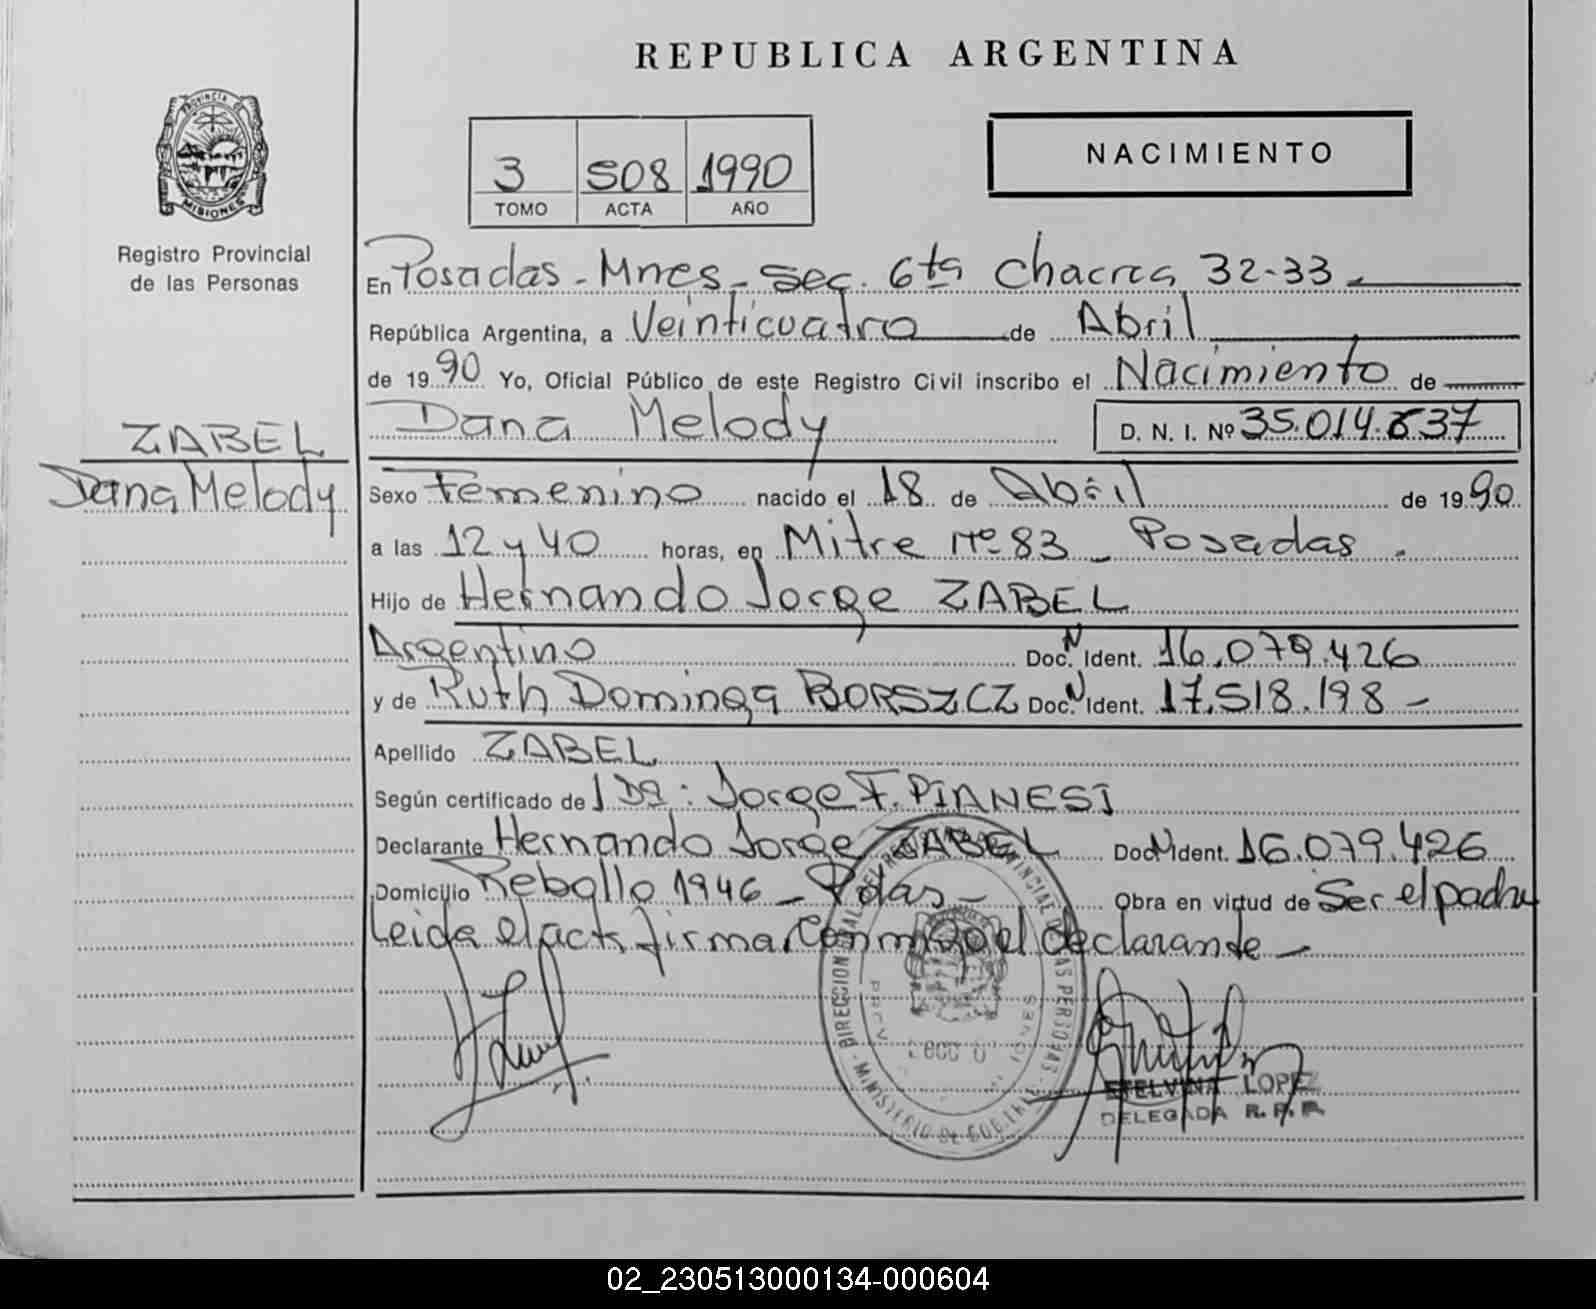 REPUBLICA ARGENTINA
PROVINCIA DE
MISIONES
Registro Provincial
de las Personas
3 508 1990
TOMO ACTA AÑO
NACIMIENTO
En Posadas - Mnes - Sec. 6ta Chacra 32-33
República Argentina, a Veinticuatro de Abril
de 1990 Yo, Oficial Público de este Registro Civil inscribo el Nacimiento de
Dana Melody D. N. I. Nº 35.014.637
ZABEL
Dana Melody
Sexo Femenino nacido el 18 de Abril de 1990
a las 12 y 40 horas, en Mitre Nº 83 - Posadas.
Hijo de Hernando Jorge ZABEL
Argentino Doc. N Ident. 16.079.426
y de Ruth Dominga BORSZCZ Doc. N Ident. 17.518.198 -
Apellido ZABEL
Según certificado de Dr: Jorge F. PIANESI
Declarante Hernando Jorge ZABEL Doc N Ident. 16.079.426
Domicilio Rebollo 1946 - Pdas - Obra en virtud de Ser el padre
Leida el acta firma conmigo el declarante -
DIRECCION DEL REGISTRO PROVINCIAL DE LAS PERSONAS - MINISTERIO DE GOBIERNO
ETELVINA LOPEZ
DELEGADA R. P. P.
02_230513000134-000604